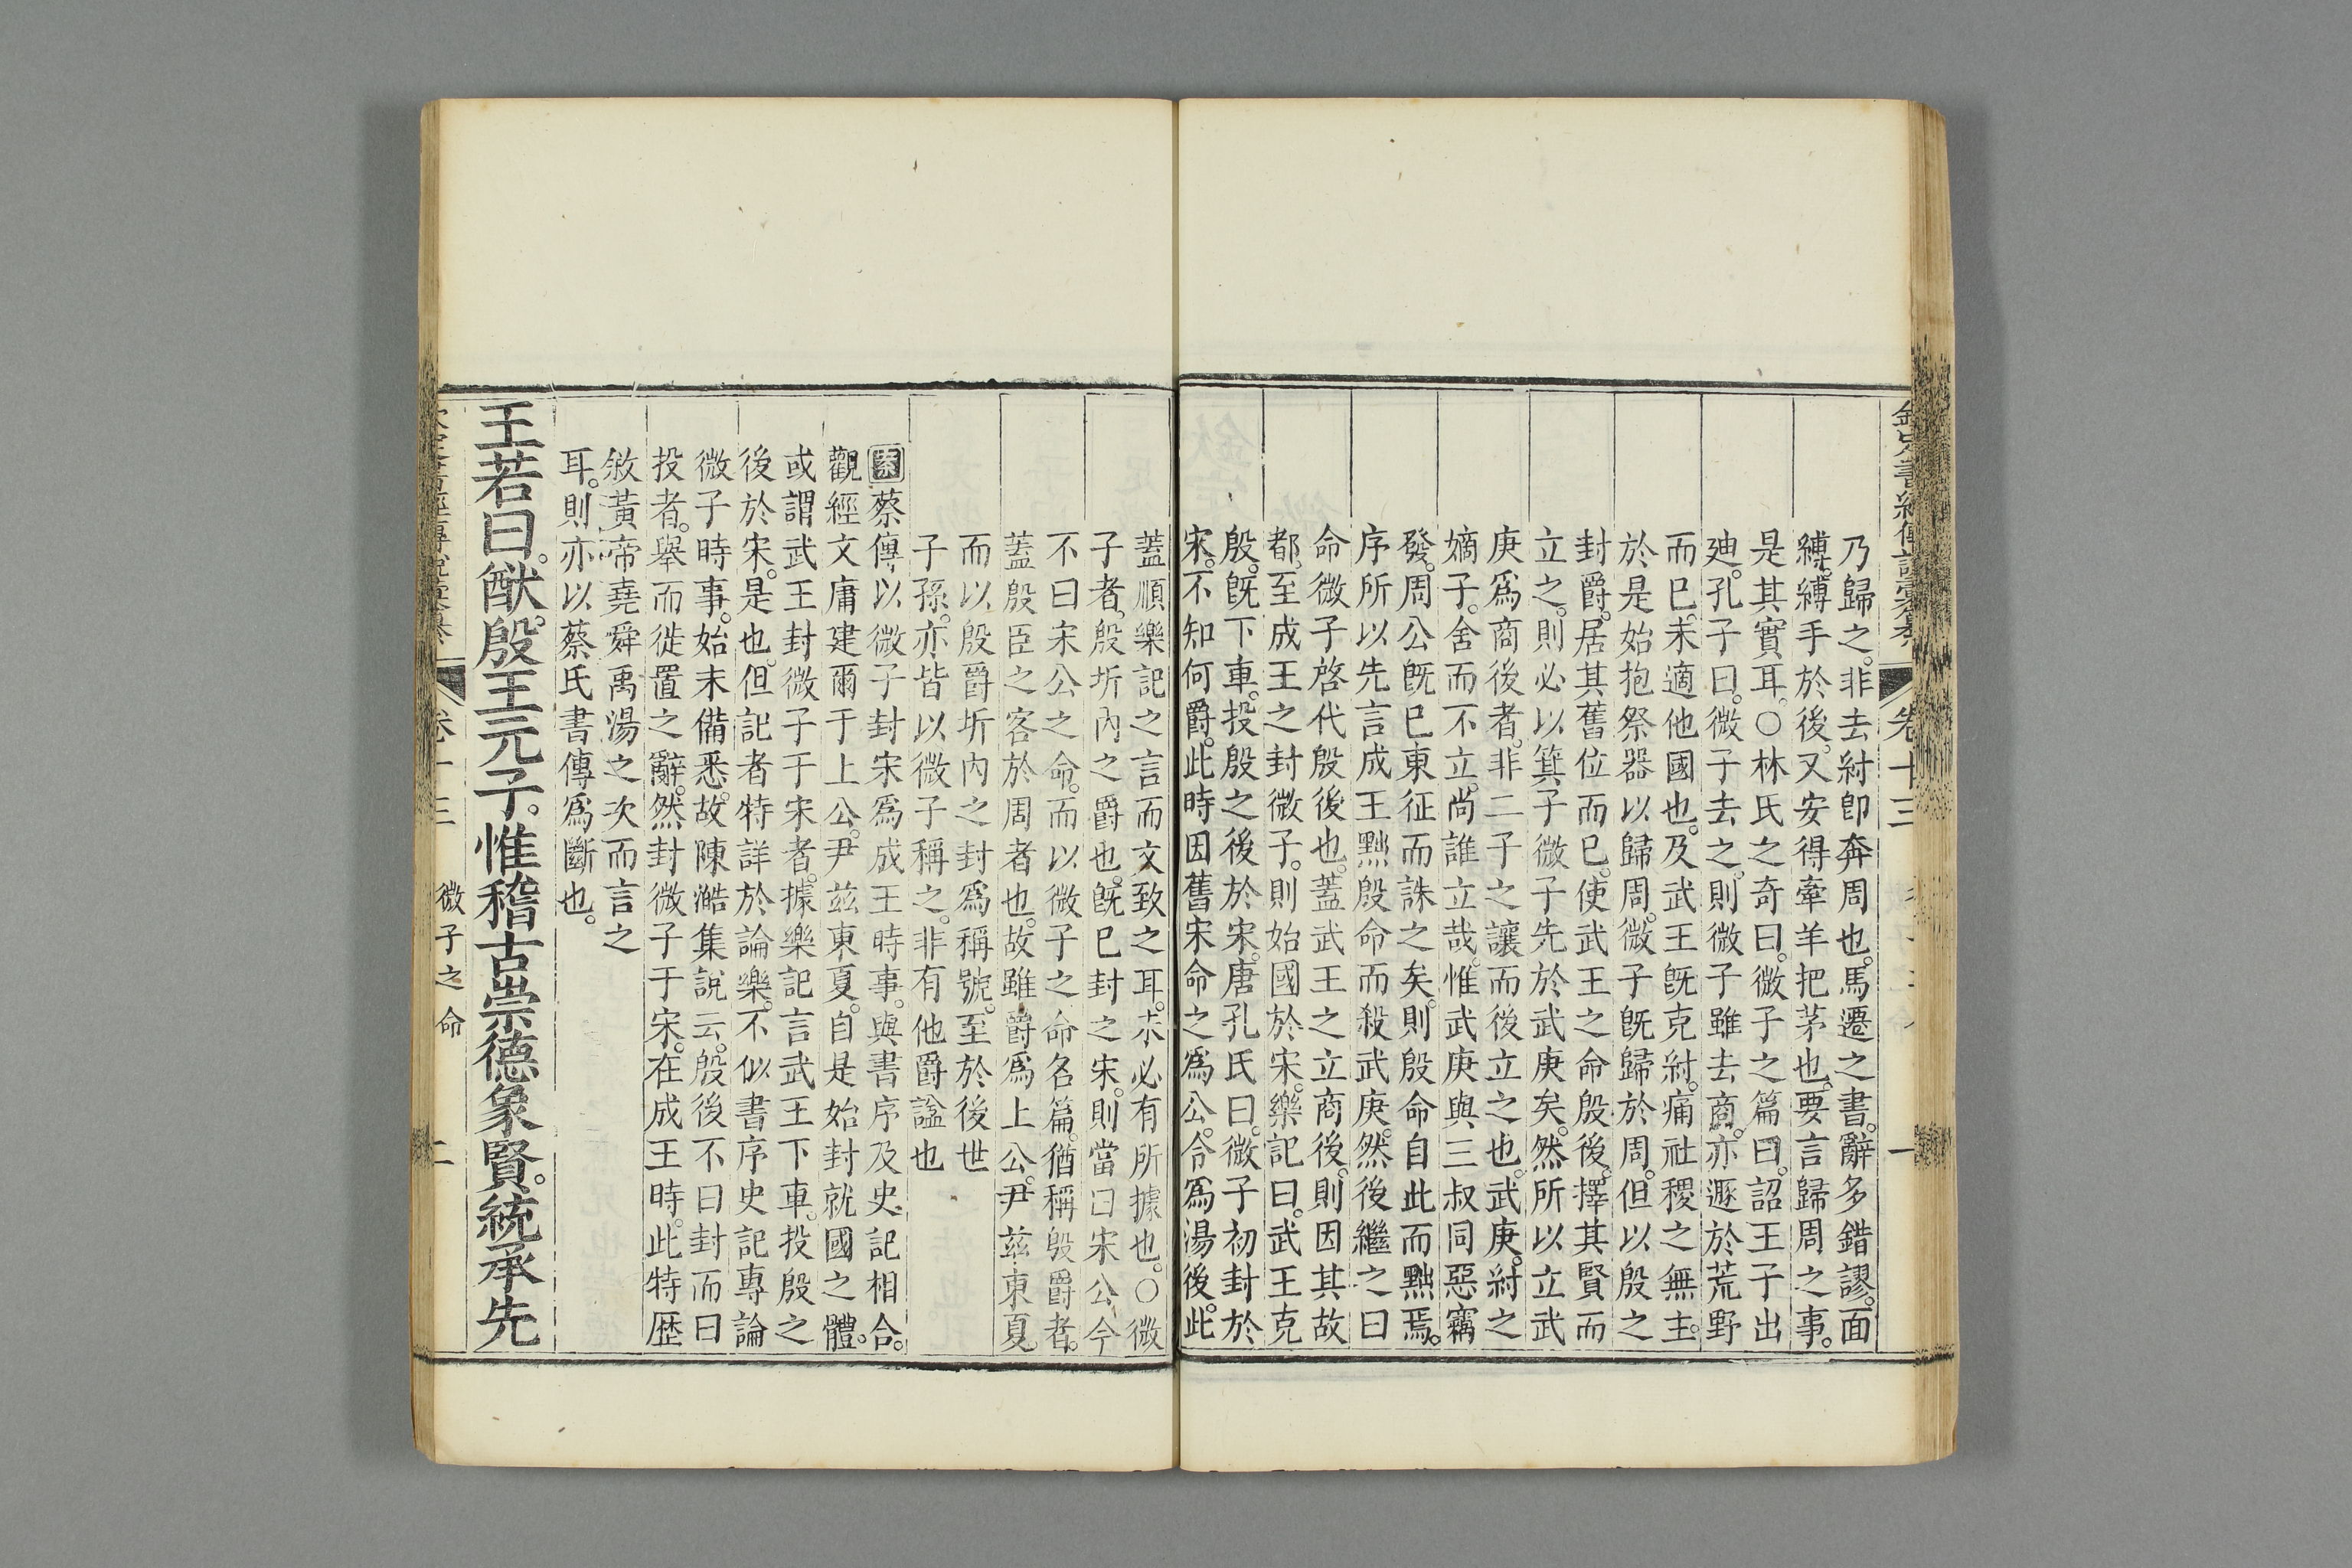 乃歸之。非去紂卽奔周也。馬遷之書。辭多錯謬。面
縛。縛手於後。又安得牽羊把茅也。要言歸周之事。
是其實耳。○林氏之奇曰。微子之篇曰。詔王子出
廸。孔子曰。微子去之。則微子雖去商。亦遯於荒野
而已。未適他國也。及武王旣克紂。痛社稷之無主。
於是始抱祭器以歸周。微子旣歸於周。但以殷之
封爵。居其舊位而已。使武王之命殷後。擇其賢而
立之。則必以箕子微子先於武庚矣。然所以立武
庚爲商後者。非二子之讓而後立之也。武庚。紂之
嫡子。舍而不立。尚誰立哉。惟武庚與三叔同惡竊
發。周公旣巳東征而誅之矣。則殷命自此而黜焉。
序所以先言成王黜殷命而殺武庚。然後繼之曰
命微子啓代殷後也。蓋武王之立商後。則因其故
都。至成王之封微子。則始國於宋。樂記曰。武王克
殷。旣下車。投殷之後於宋。唐孔氏曰。微子初封於
宋。不知何爵。此時因舊宋命之爲公。令爲湯後。此
蓋順樂記之言而文致之耳。未必有所據也。○微
子者。殷圻內之爵也。旣巳封之宋。則當曰宋公。今
不曰宋公之命。而以微子之命名篇。猶稱殷爵者。
蓋殷臣之客於周者也。故雖爵爲上公。尹茲東夏。
而以殷爵圻內之封爲稱號。至於後世
子孫。亦皆以微子稱之。非有他爵諡也
案蔡傳以微子封宋爲成王時事。與書序及史記相合。
觀經文庸建爾于上公。尹茲東夏。自是始封就國之體。
或謂武王封微子于宋者。據樂記言武王下車。投殷之
後於宋。是也。但記者特詳於論樂。不似書序史記專論
微子時事。始末備悉。故陳澔集說云。殷後不曰封而曰
投者。舉而徙置之辭。然封微子于宋。在成王時。此特歷
敘黃帝堯舜禹湯之次而言之
耳。則亦以蔡氏書傳爲斷也。
王若曰。猷。殷王元子。惟稽古崇德象賢。統承先
微子之命
二